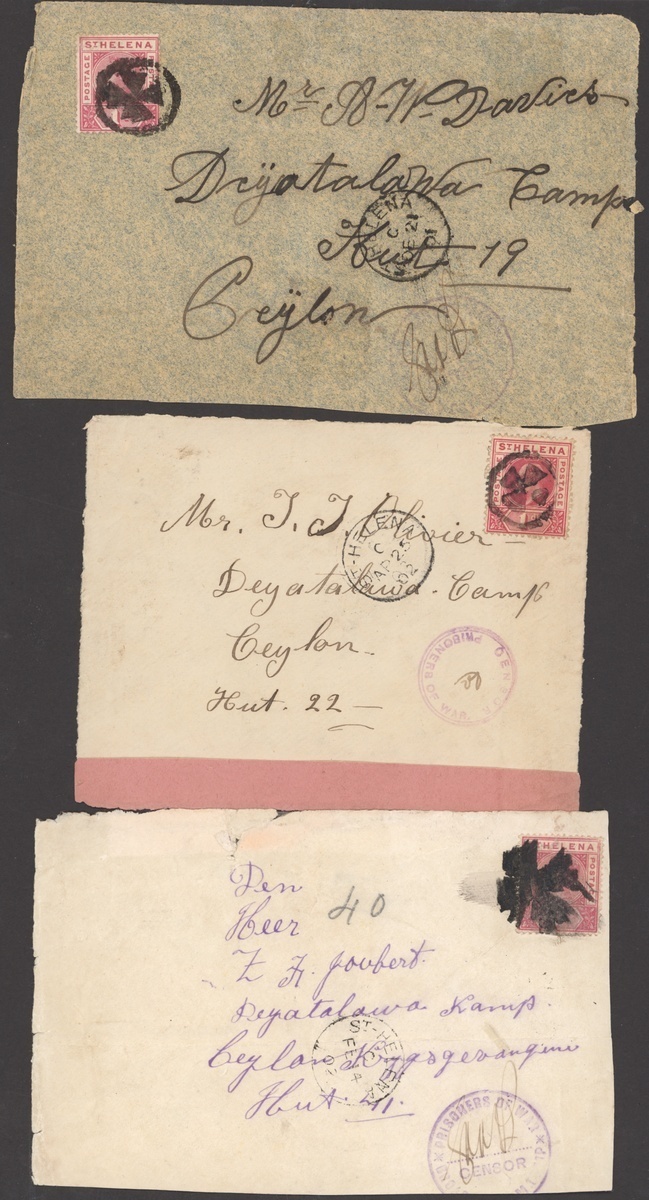 ST HELENA
POSTAGE
Mr A. W. Davies
Deÿatalawa Camp
Hut 19
Ceÿlon
ST HELENA
C
DE 21
01
ST HELENA
POSTAGE POSTAGE
Mr. J. J. Olivier
Deyatalawa. Camp
Ceylon.
Hut. 22
ST-HELENA
C
AP 25
02
CENSOR
PRISONERS OF WAR.
ST HELENA
POSTAGE
Den
Heer 40
Z A. Joubert.
Deyatalawa Kamp.
Ceylon Krygsgevangene
Hut 41.
ST-HELENA
C
FE 14
02
PRISONERS OF WAR
CENSOR